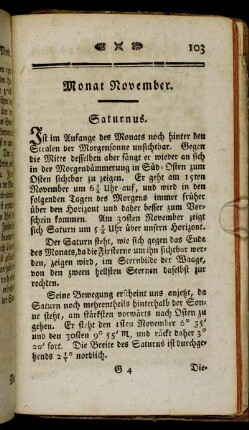 103
Monat November.
Saturnus.
Ist im Anfange des Monats noch hinter den
Stralen der Morgensonne unsichtbar. Gegen
die Mitte desselben aber fängt er wieder an sich
in der Morgendämmerung in Süd-Osten zum
Osten sichtbar zu zeigen. Er geht am 15ten
November um 6¼ Uhr auf, und wird in den
folgenden Tagen des Morgens immer früher
über den Horizont und daher besser zum Vor-
schein kommen. Am 30sten November zeigt
sich Saturn um 5½ Uhr über unsern Horizont.
Der Saturn steht, wie sich gegen das Ende
des Monats, da die Fixsterne um ihn sichtbar wer-
den, zeigen wird, im Sternbilde der Waage,
von den zween hellsten Sternen daselbst zur
rechten.
Seine Bewegung erscheint uns anjetzt, da
Saturn noch mehrentheils hinterhalb der Son-
ne steht, am stärksten vorwärts nach Osten zu
gehen. Er steht den 1sten November 6° 35'
und den 30sten 9° 55' ♏, und rückt daher 3°
20' fort. Die Breite des Saturns ist durchge-
hends 2¼° nordlich.
G 4 Die-